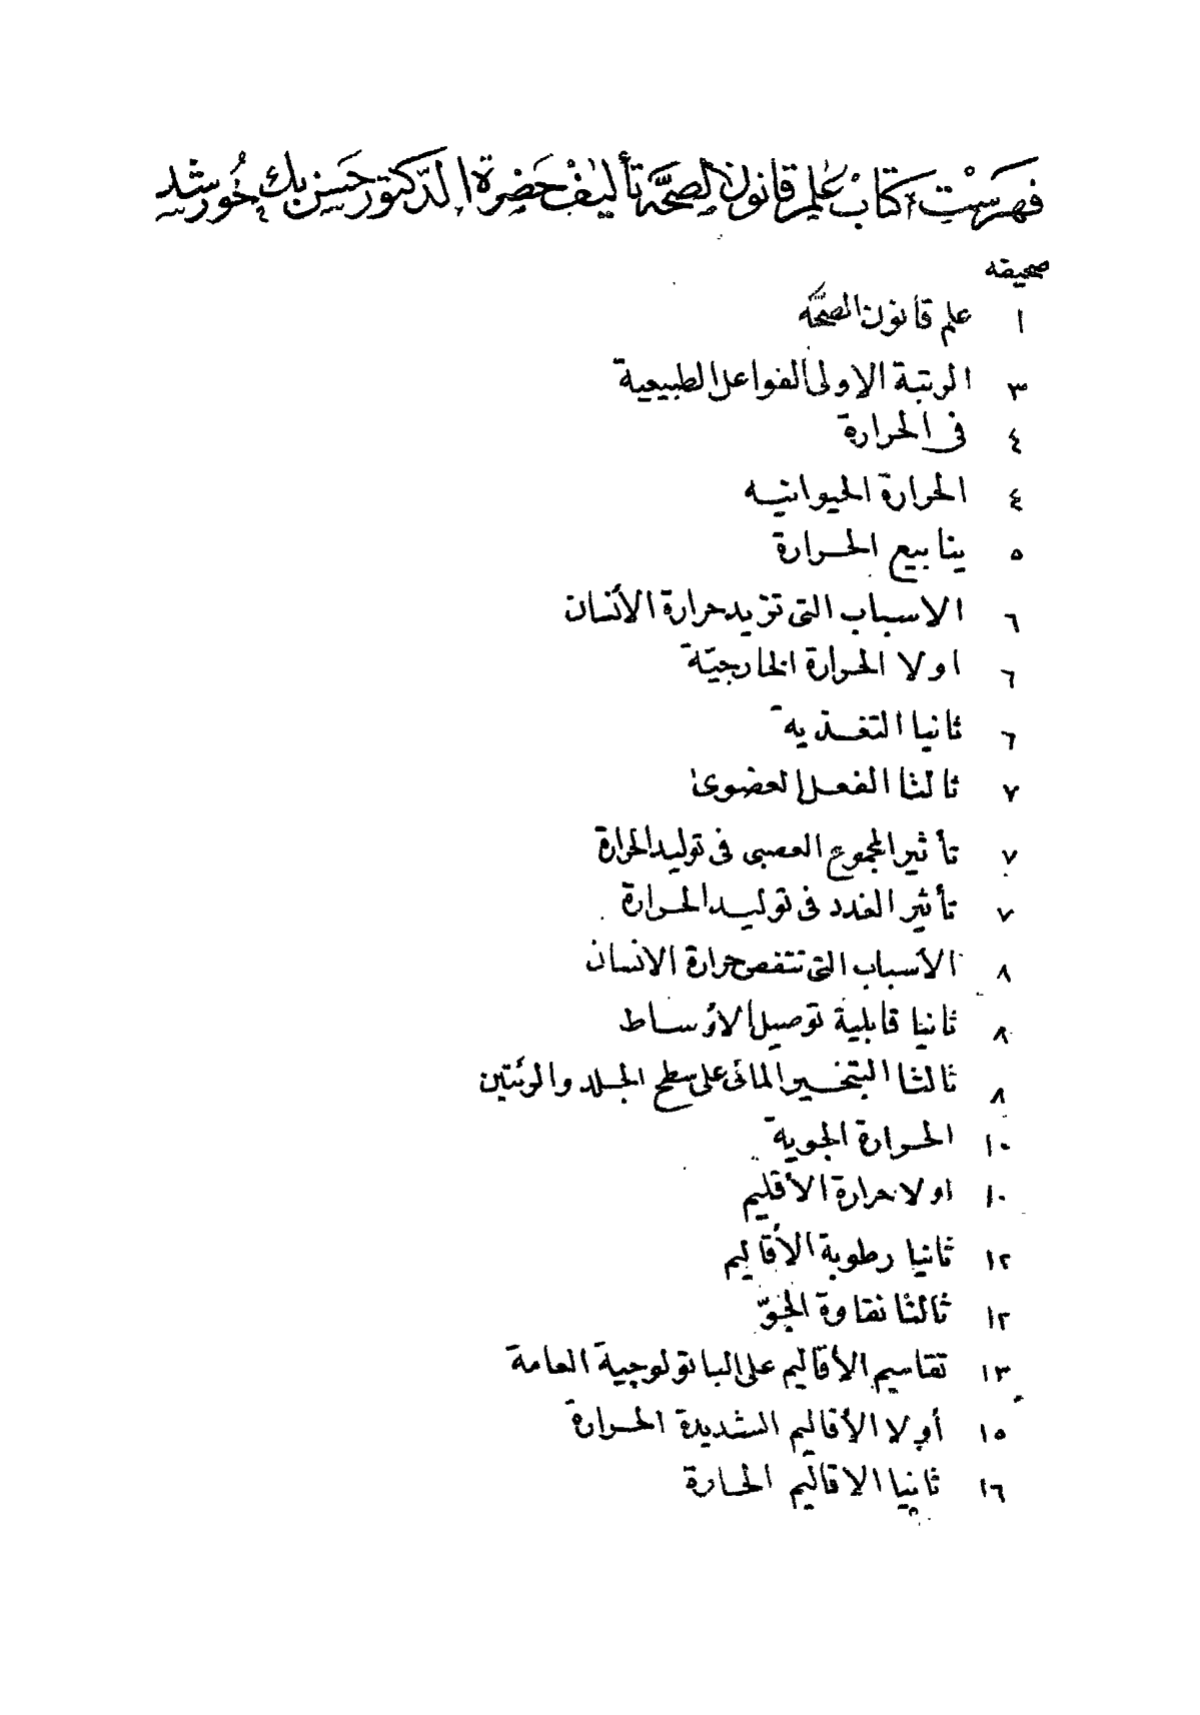 فهرست كتاب علم قانون الصحَّة تأليف حضرة الدكتور حسن بك خورشد
صحيفه
١ علم قانون الصحَّة
٣ الرتبة الاولى الفواعل الطبيعية
٤ فى الحرارة
٤ الحرارة الحيوانيه
٥ ينابيع الحرارة
٦ الاسباب التى تزيد حرارة الأنسان
٦ اولا الحرارة الخارجيّة
٦ ثانيا التغذية
٧ ثالثا الفعل العضوى
٧ تأثير المجموع العصبى فى توليد الحرارة
٧ تأثير الغدد فى توليد الحرارة
٨ الأسباب التى تنقص حرارة الانسان
٨ ثانيا قابلية توصيل الأوساط
٨ ثالثا التبخير المائى على سطح الجلد والرئتين
١٠ الحرارة الجوية
١٠ اولا حرارة الأقليم
١٢ ثانيا رطوبة الأقاليم
١٢ ثالثا نقاوة الجوّ
١٣ تقاسيم الأقاليم على الباتولوجية العامة
١٥ أولا الأقاليم الشديدة الحرارة
١٦ ثانيا الاقاليم الحارة